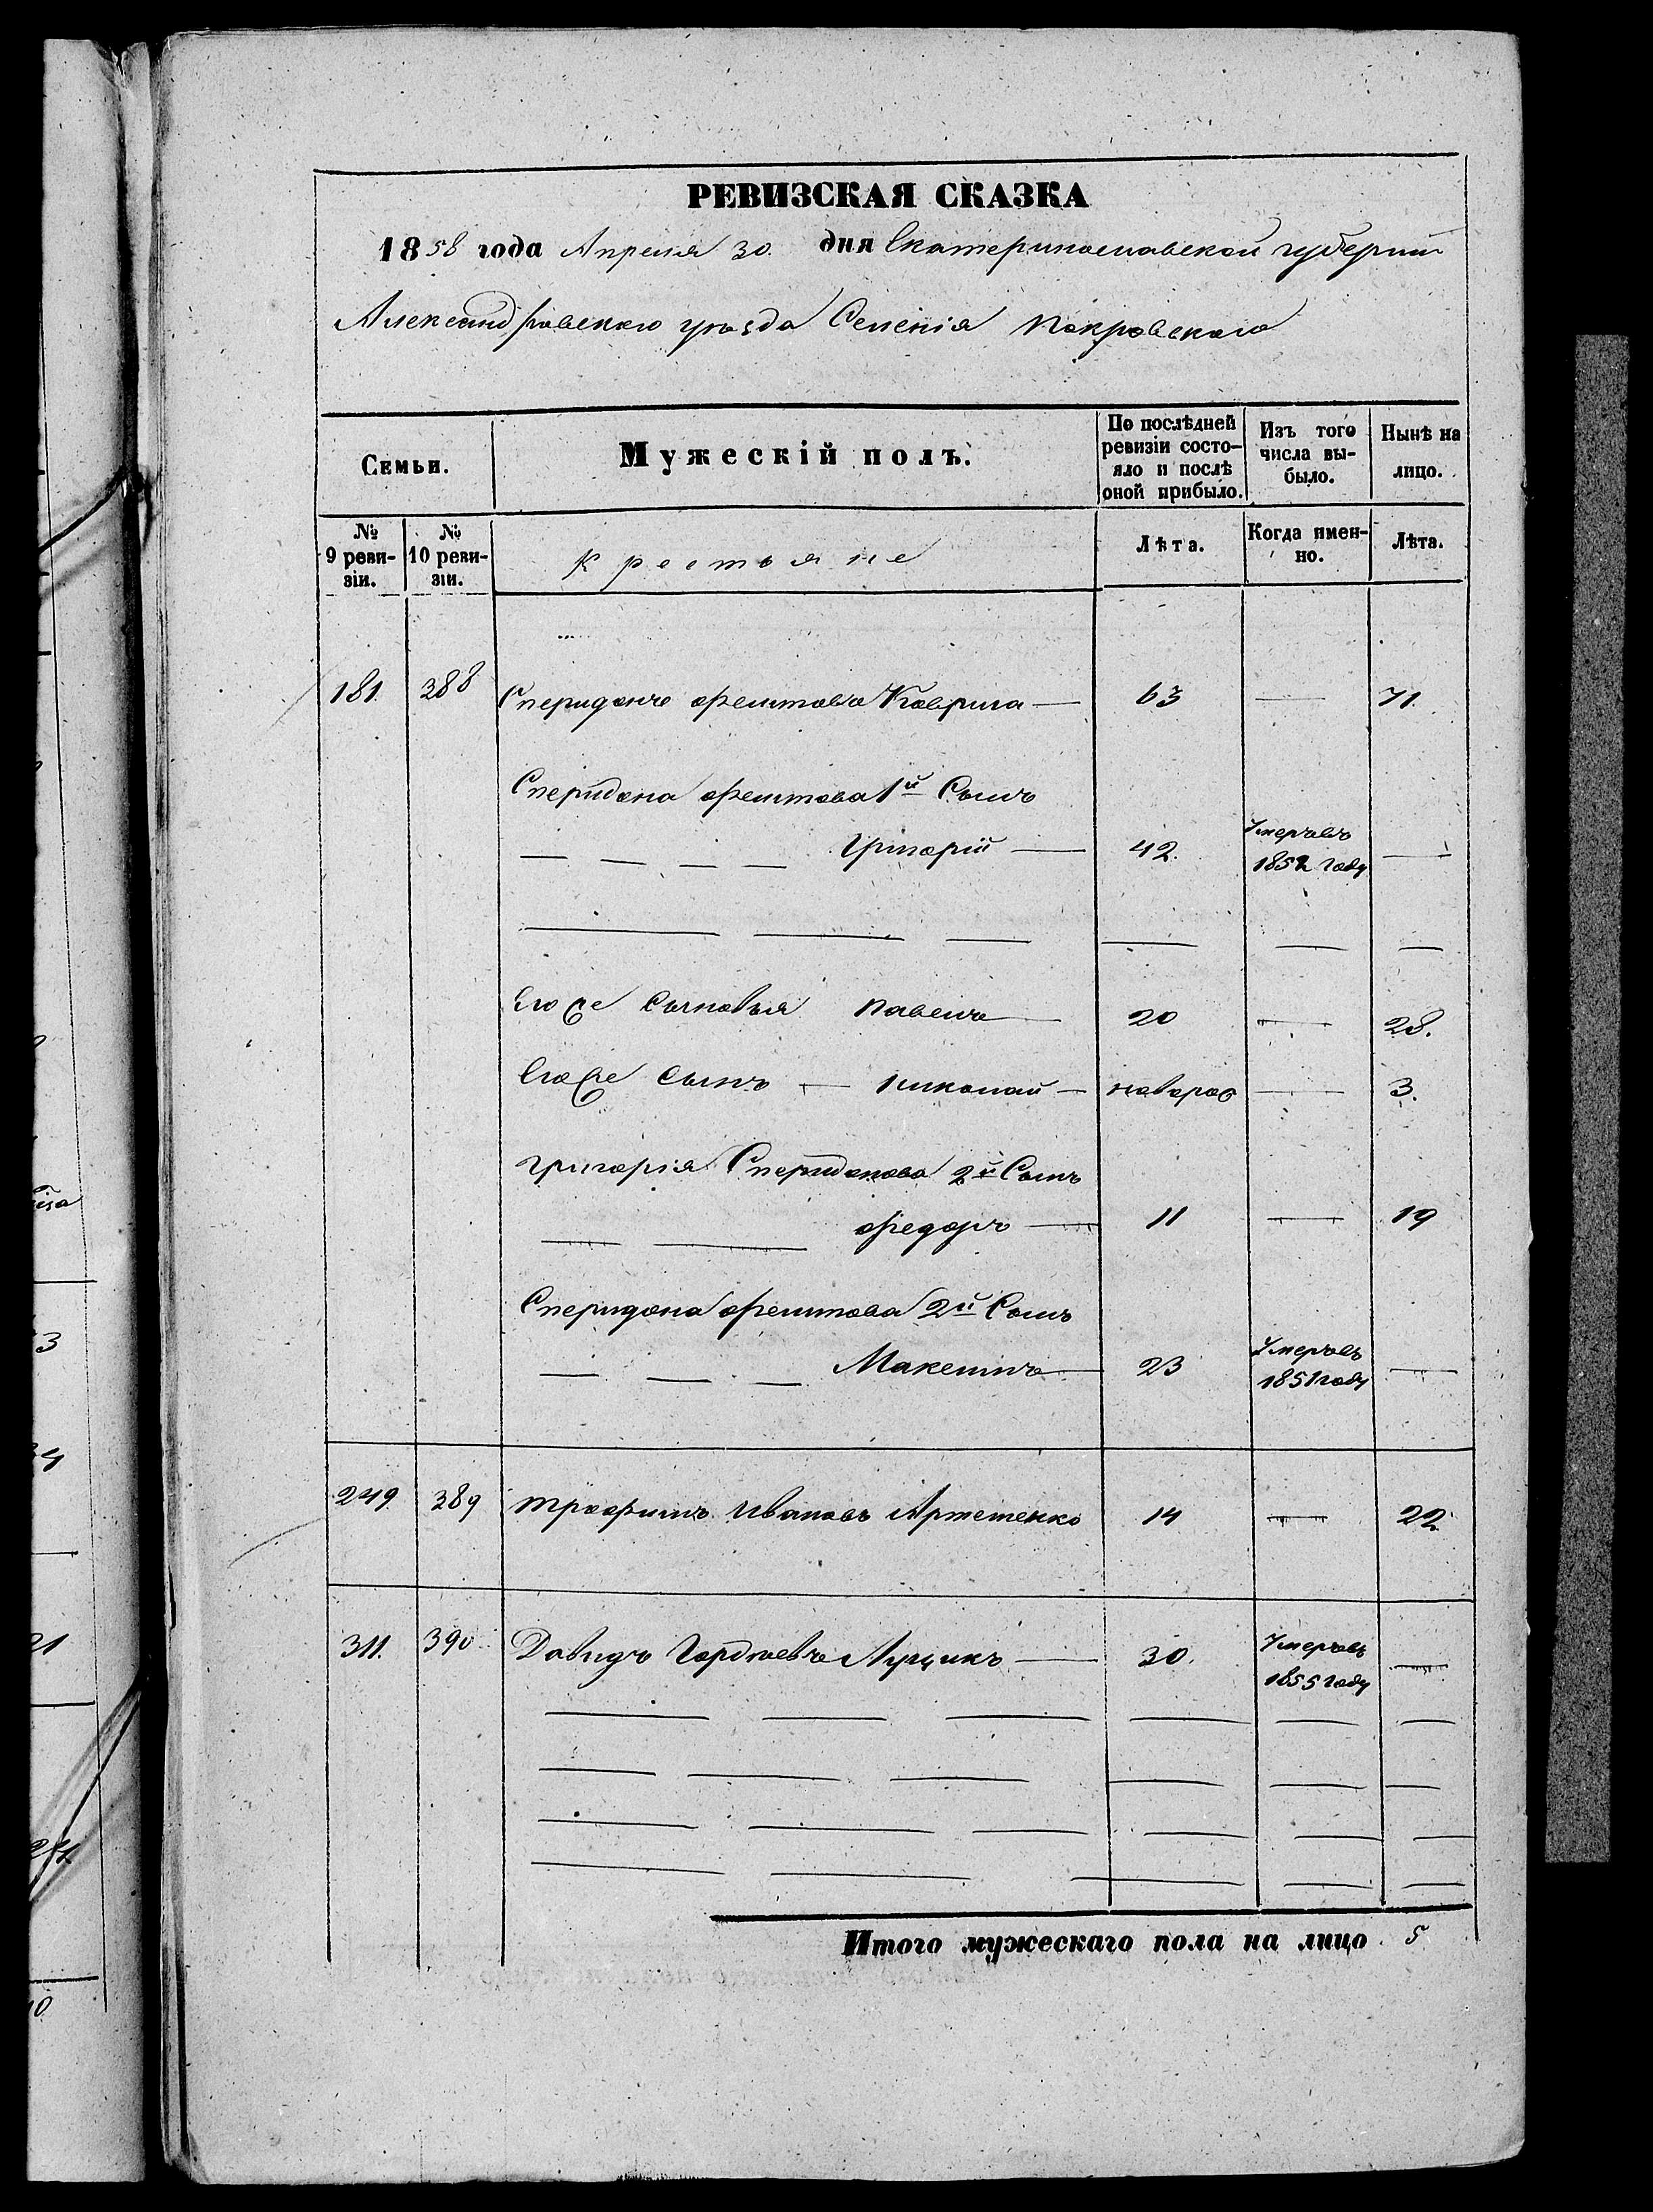 РЕВИЗСКАЯ СКАЗКА
1858 года Апреля 30. дня Екатеринославской губернiи
Александровскаго уѣзда Селенiя Покровскаго
Семьи.
Мужескiй полъ.
По послѣдней ревизiи состо-
яло и послѣ
оной прибыло.
Изъ того
числа вы-
было.
Нынѣ на
лицо.
№ 9 реви-
зiи.
№ 10 реви-
зiи.
Крестьяне
Лѣта.
Когда имен-
но.
Лѣта.
181. 388 Сперидонъ Филитовъ Коврига 63 71.
Сперидона Филитова 1й Сынъ
Григорiй 42. Умеръ въ
1852 году
Его же Сыновья Павелъ 20 28.
Его же Сынъ Николай новорож 3.
Григорiя Сперидонова 2й Сынъ
Федоръ 11 19
Сперидона Филитова 2й Сынъ
Максимъ 23 Умеръ въ
1851 году
249. 389 Трофимъ Ивановъ Артеменко 14 22
311. 390 Давидъ Гордѣевъ Луцикъ 30. Умеръ въ
1855 году
Итого мужескаго пола на лицо 5